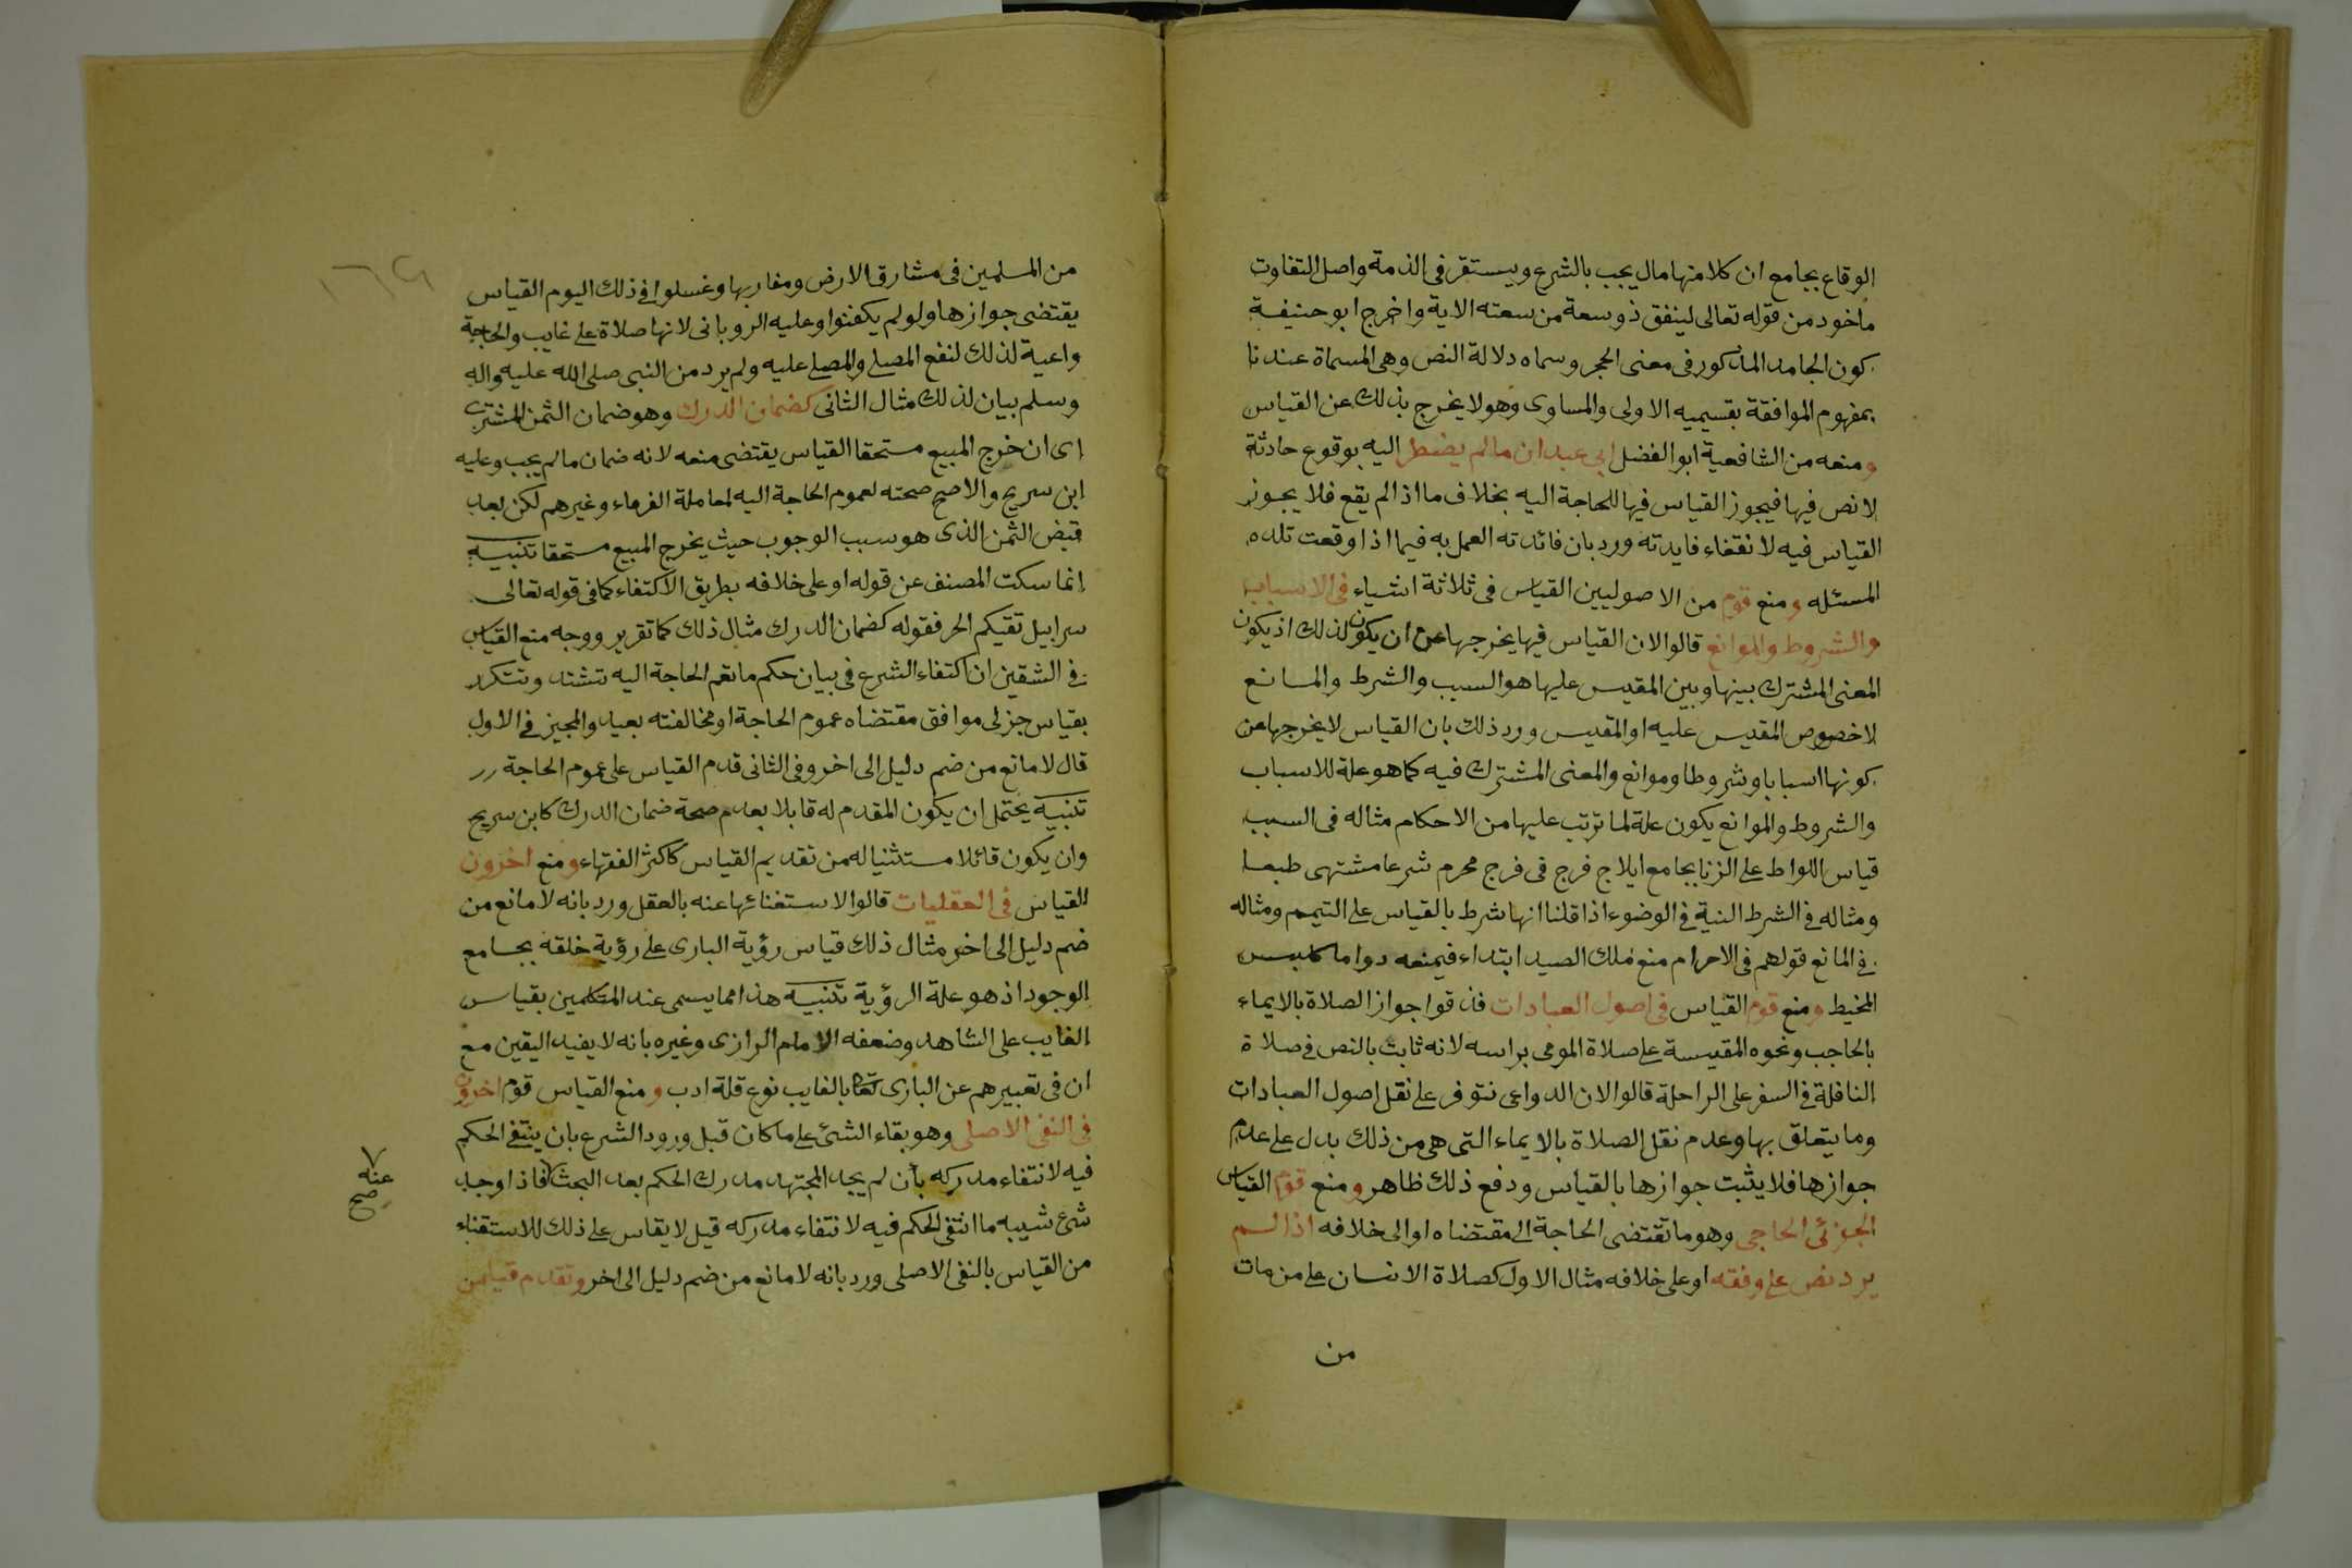 الوقاع بجامع ان كلا منها مال يجب بالشرع ويستقر فى الذمة واصل التفاوت
ماخود من قوله تعالى لينفق ذو سعة من سعته الاية واخرج ابو حنيفة
كون الجامد المذكور فى معنى الحجر وسماه دلالة النص وهى المسماة عندنا
بمفهوم الموافقة بقسيميه الاولى والمساوى وهو لا يخرج بذلك عن القياس
ومنعه من الشافعية ابو الفضل ابى عبدان مالم يضطر اليه بوقوع حادثة
لا نص فيها فيجوز القياس فيها للحاجة اليه بخلاف ما اذا لم يقع فلا يجوز
القياس فيه لانتفاء فايدته ورد بان فائدته العمل به فيما اذا وقعت تلده
المسئله ومنع قوم من الاصوليين القياس فى ثلاثة اشياء فى الاسباب
والشروط والموانع قالوا لان القياس فيها يخرجها عن ان يكون لذلك اذ يكون
المعنى المشترك بينها وبين المقيس عليها هو السبب والشرط والمانع
لا خصوص المقيس عليه او المقيس ورد ذلك بان القياس لا يخرجها عن
كونها اسبابا وشروطا وموانع والمعنى المشترك فيه كما هو علة للاسباب
والشروط والموانع يكون علة لما ترتب عليها من الاحكام مثاله فى السبب
قياس اللواط على الزنا بجامع ايلاج فرج فى فرج محرم شرعا مشتهى طبعا
ومثاله فى الشرط النية فى الوضوء اذا قلنا انها شرط بالقياس على التيمم ومثاله
فى المانع قولهم فى الاحرام منع ملك الصيد ابتداء فيمنعه دواما كلبس
المخيط ومنع قوم القياس فى اصول العبادات فنفوا جواز الصلاة بالايماء
بالحاجب ونحوه المقيسة على صلاة المومى براسه لانه ثابت بالنص فى صلاة
النافلة فى السفر على الراحلة قالوا لان الدواعى تتوفر على نقل اصول العبادات
وما يتعلق بها وعدم نقل الصلاة بالايماء التى هى من ذلك يدل على عدم
جوازها فلا يثبت جوازها بالقياس ودفع ذلك ظاهر ومنع قوم القياس
الجزئى الحاجى وهو ما تقتضى الحاجة الى مقتضاه او الى خلافه اذا لم
يرد نص على وفقه او على خلافه مثال الاول كصلاة الانسان على من مات
من
من المسلمين فى مشارق الارض ومغاربها وغسلوا فى ذلك اليوم القياس
يقتضى جوازها ولو لم يكفنوا وعليه الرويانى لانها صلاة على غايب والحاجة
داعية لذلك لنفع المصلى والمصلى عليه ولم يرد من النبى صلى الله عليه واله
وسلم بيان لذلك مثال الثانى كضمان الدرك وهو ضمان الثمن للمشترى
اى ان خرج المبيع مستحقا القياس يقتضى منعه لانه ضمان مالم يجب وعليه
ابن سريج والاصح صحته لعموم الحاجة اليه لمعاملة الغرماء وغيرهم لكن بعد
قبض الثمن الذى هو سبب الوجوب حيث يخرج المبيع مستحقا تنبيه
انما سكت المصنف عن قوله او على خلافه بطريق الاكتفاء كما فى قوله تعالى
سرابيل تقيكم الحر فقوله كضمان الدرك مثال ذلك كما تقرر ووجه منع القياس
فى الشقين ان اكتفاء الشرع فى بيان حكم ما تعم الحاجة اليه تشتد وتتكرر
بقياس جزئى موافق مقتضاه عموم الحاجة او مخالفته بعيد والمجيز فى الاول
قال لا مانع من ضم دليل الى اخر وفى الثانى قدم القياس على عموم الحاجة
تنبيه يحتمل ان يكون المقدم له قابلا بعدم صحة ضمان الدرك كابن سريج
وان يكون قائلا مستثنيا له من تقديم القياس كاكثر الفقهاء ومنع اخرون
القياس فى العقليات قالوا لاستغنائها عنه بالعقل ورد بانه لا مانع من
ضم دليل الى اخر مثال ذلك قياس رؤية البارى على رؤية خلقه بجامع
الوجود اذ هو علة الرؤية تنبيه هذا مما يسمى عند المتكلمين بقياس
الغايب على الشاهد وضعفه الامام الرازى وغيره بانه لا يفيد اليقين مع
ان فى تعبيرهم عن البارى تعا بالغايب نوع قلة ادب ومنع القياس قوم اخرون
فى النفى الاصلى وهو بقاء الشئ على ما كان قبل ورود الشرع بان ينتفى الحكم
فيه لانتفاء مدركه بأن لم يجد المجتهد مدرك الحكم بعد البحث فاذا وجد
عنه
صح
شئ شبيه ما انتفى الحكم فيه لانتفاء مدركه قيل لا يقاس على ذلك للاستغناء
من القياس بالنفى الاصلى ورد بانه لا مانع من ضم دليل الى اخر وتقدم قياس